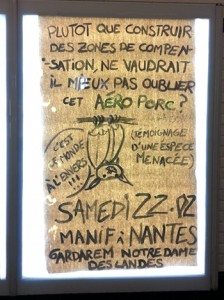 PLUTOT QUE CONSTRUIR
DES ZONES DE COMPEN-
-SATION, NE VAUDRAIT
IL MIEUX PAS OUBLIER
CET AÉRO PORC ?
C'EST
LE MONDE
À L'ENVERS !!!
(TÉMOIGNAGE
D'UNE ESPECE
MENACÉE)
SAMEDI 22.02
MANIF À NANTES
GARDAREM NOTRE DAME
DES LANDES